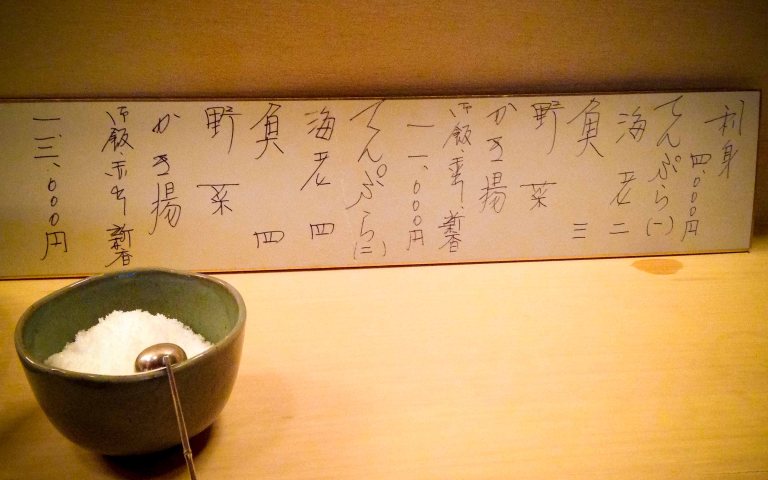 刺身
四、〇〇〇円
てんぷら(一)
海老 二
魚 三
野菜
かき揚
御飯・赤出・新香
一一、〇〇〇円
てんぷら(二)
海老 四
魚 四
野菜
かき揚
御飯・赤出・新香
一三、〇〇〇円